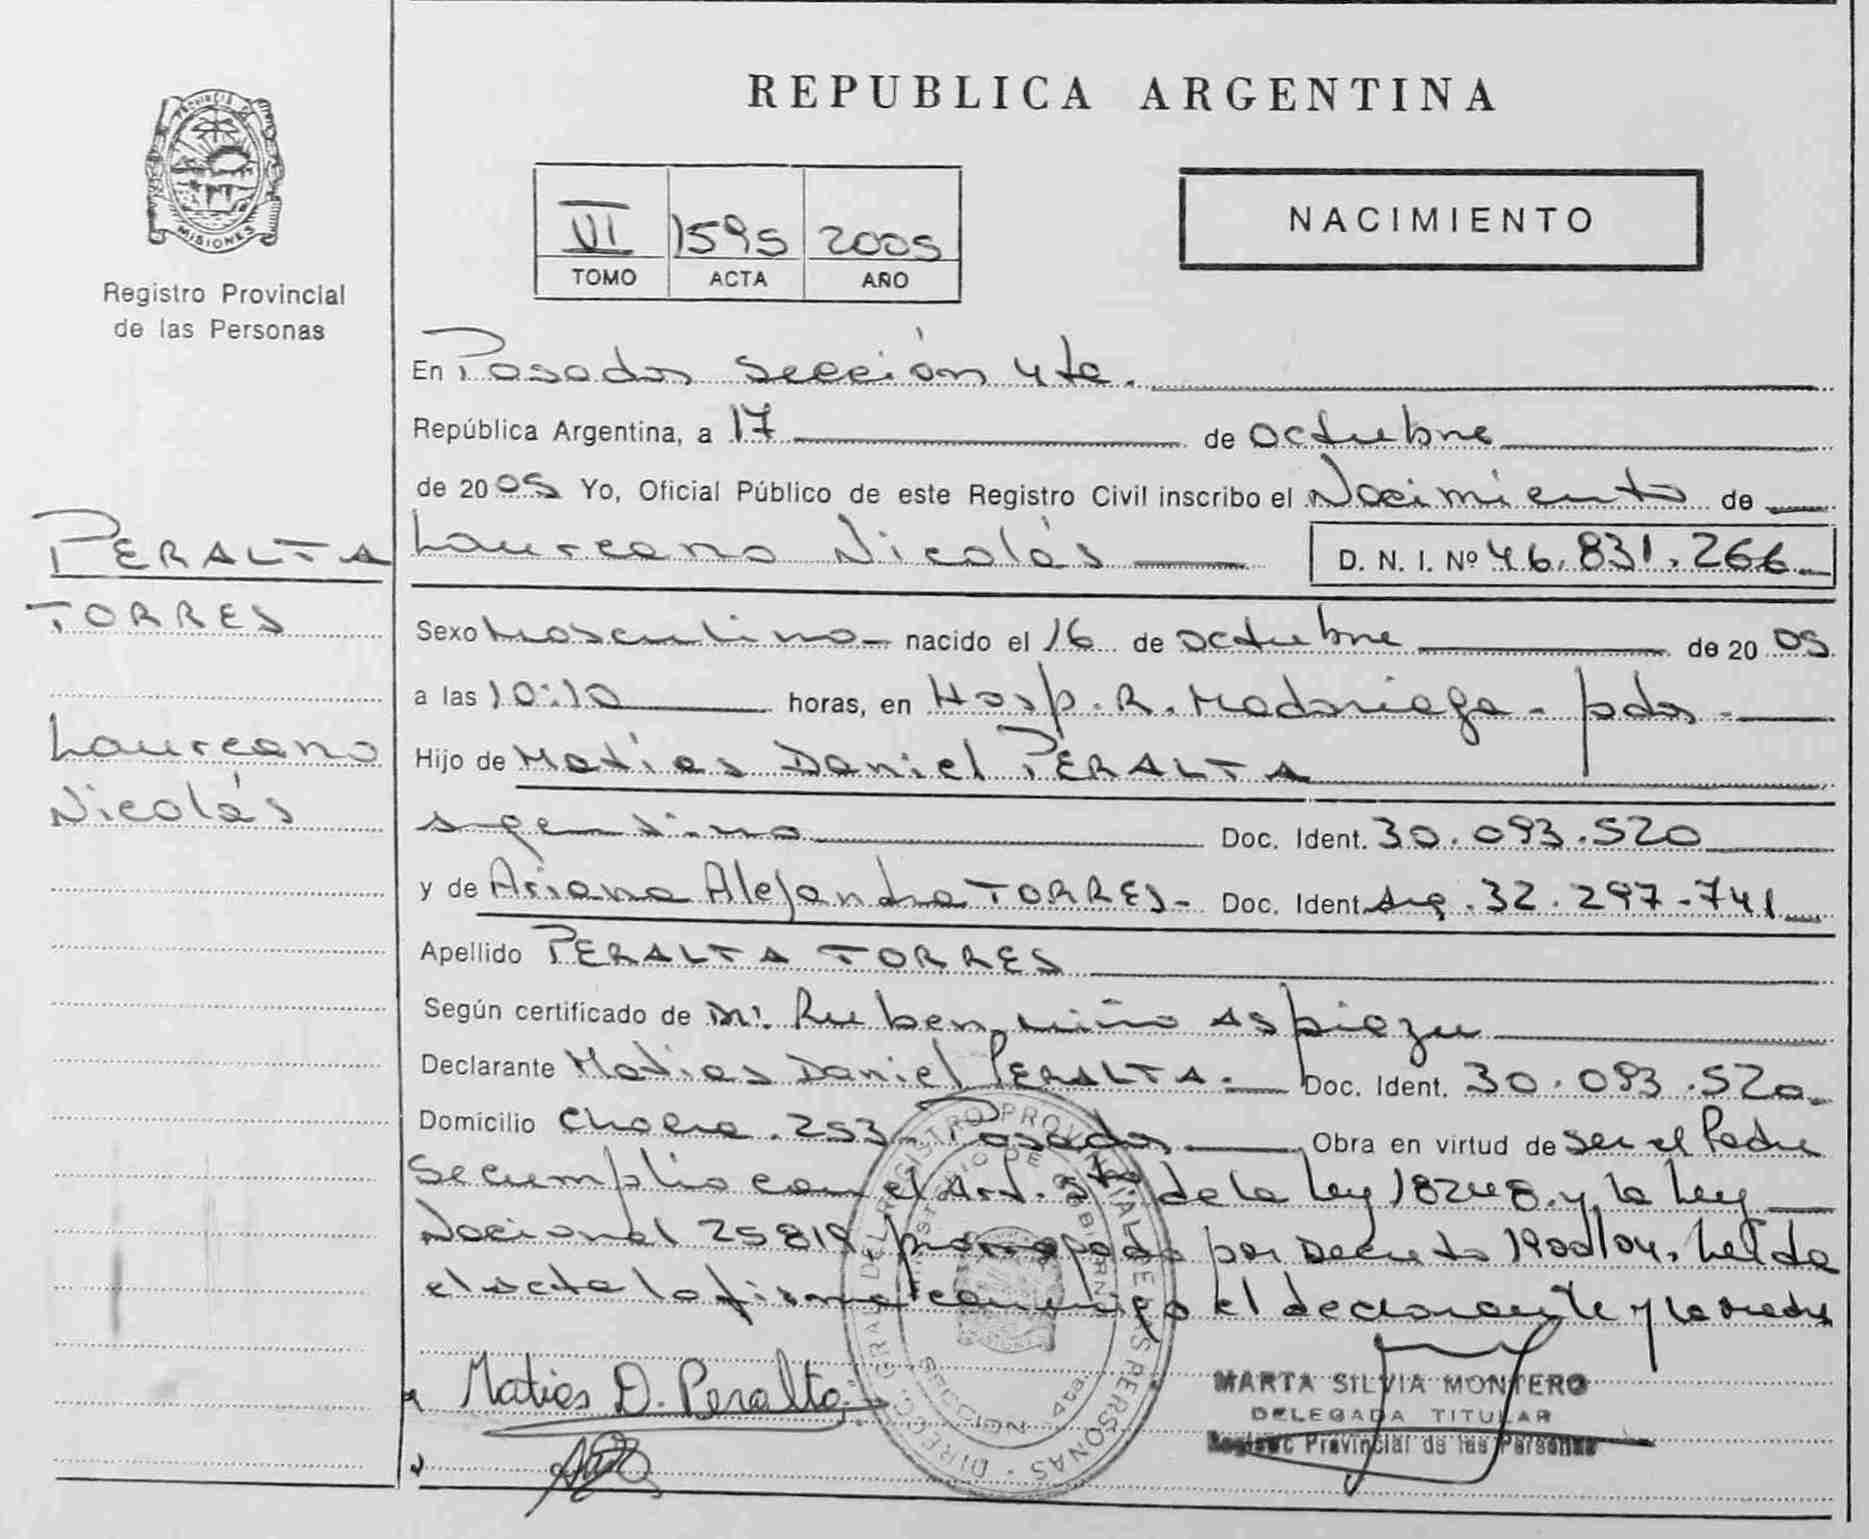 REPUBLICA ARGENTINA
PROVINCIA DE
MISIONES
Registro Provincial
de las Personas
VI 1595 2005
TOMO ACTA AÑO
NACIMIENTO
En Posadas Sección 4ta.
República Argentina, a 17 de octubre
de 2005 Yo, Oficial Público de este Registro Civil inscribo el Nacimiento de
PERALTA
TORRES
Laureano
Nicolás
Laureano Nicolás D. N. I. Nº 46.831.266
Sexo Masculino nacido el 16 de octubre de 2005
a las 10:10 horas, en Hosp. R. Madariaga - pdas -
Hijo de Matías Daniel PERALTA
argentino Doc. Ident. 30.093.520
y de Ariana Alejandra TORRES - Doc. Ident. Arg. 32.297.741
Apellido PERALTA TORRES
Según certificado de Dr. Ruben Miño Aspiazu
Declarante Matías Daniel PERALTA. Doc. Ident. 30.093.520
Domicilio 253 - Posadas Obra en virtud de ser el Padre
Se cumplio con el Art. de la Ley 18248 y la Ley
Nacional 25819 por Decreto 1900/04. Leída
el acta la firma conmigo el declarante y la madre
Matias D. Peralta
DIRECC. GRAL. DEL REGISTRO PROVINCIAL DE LAS PERSONAS
MINISTERIO DE GOBIERNO
SECCION 4ta.
MARTA SILVIA MONTERO
DELEGADA TITULAR
Registro Provincial de las Personas